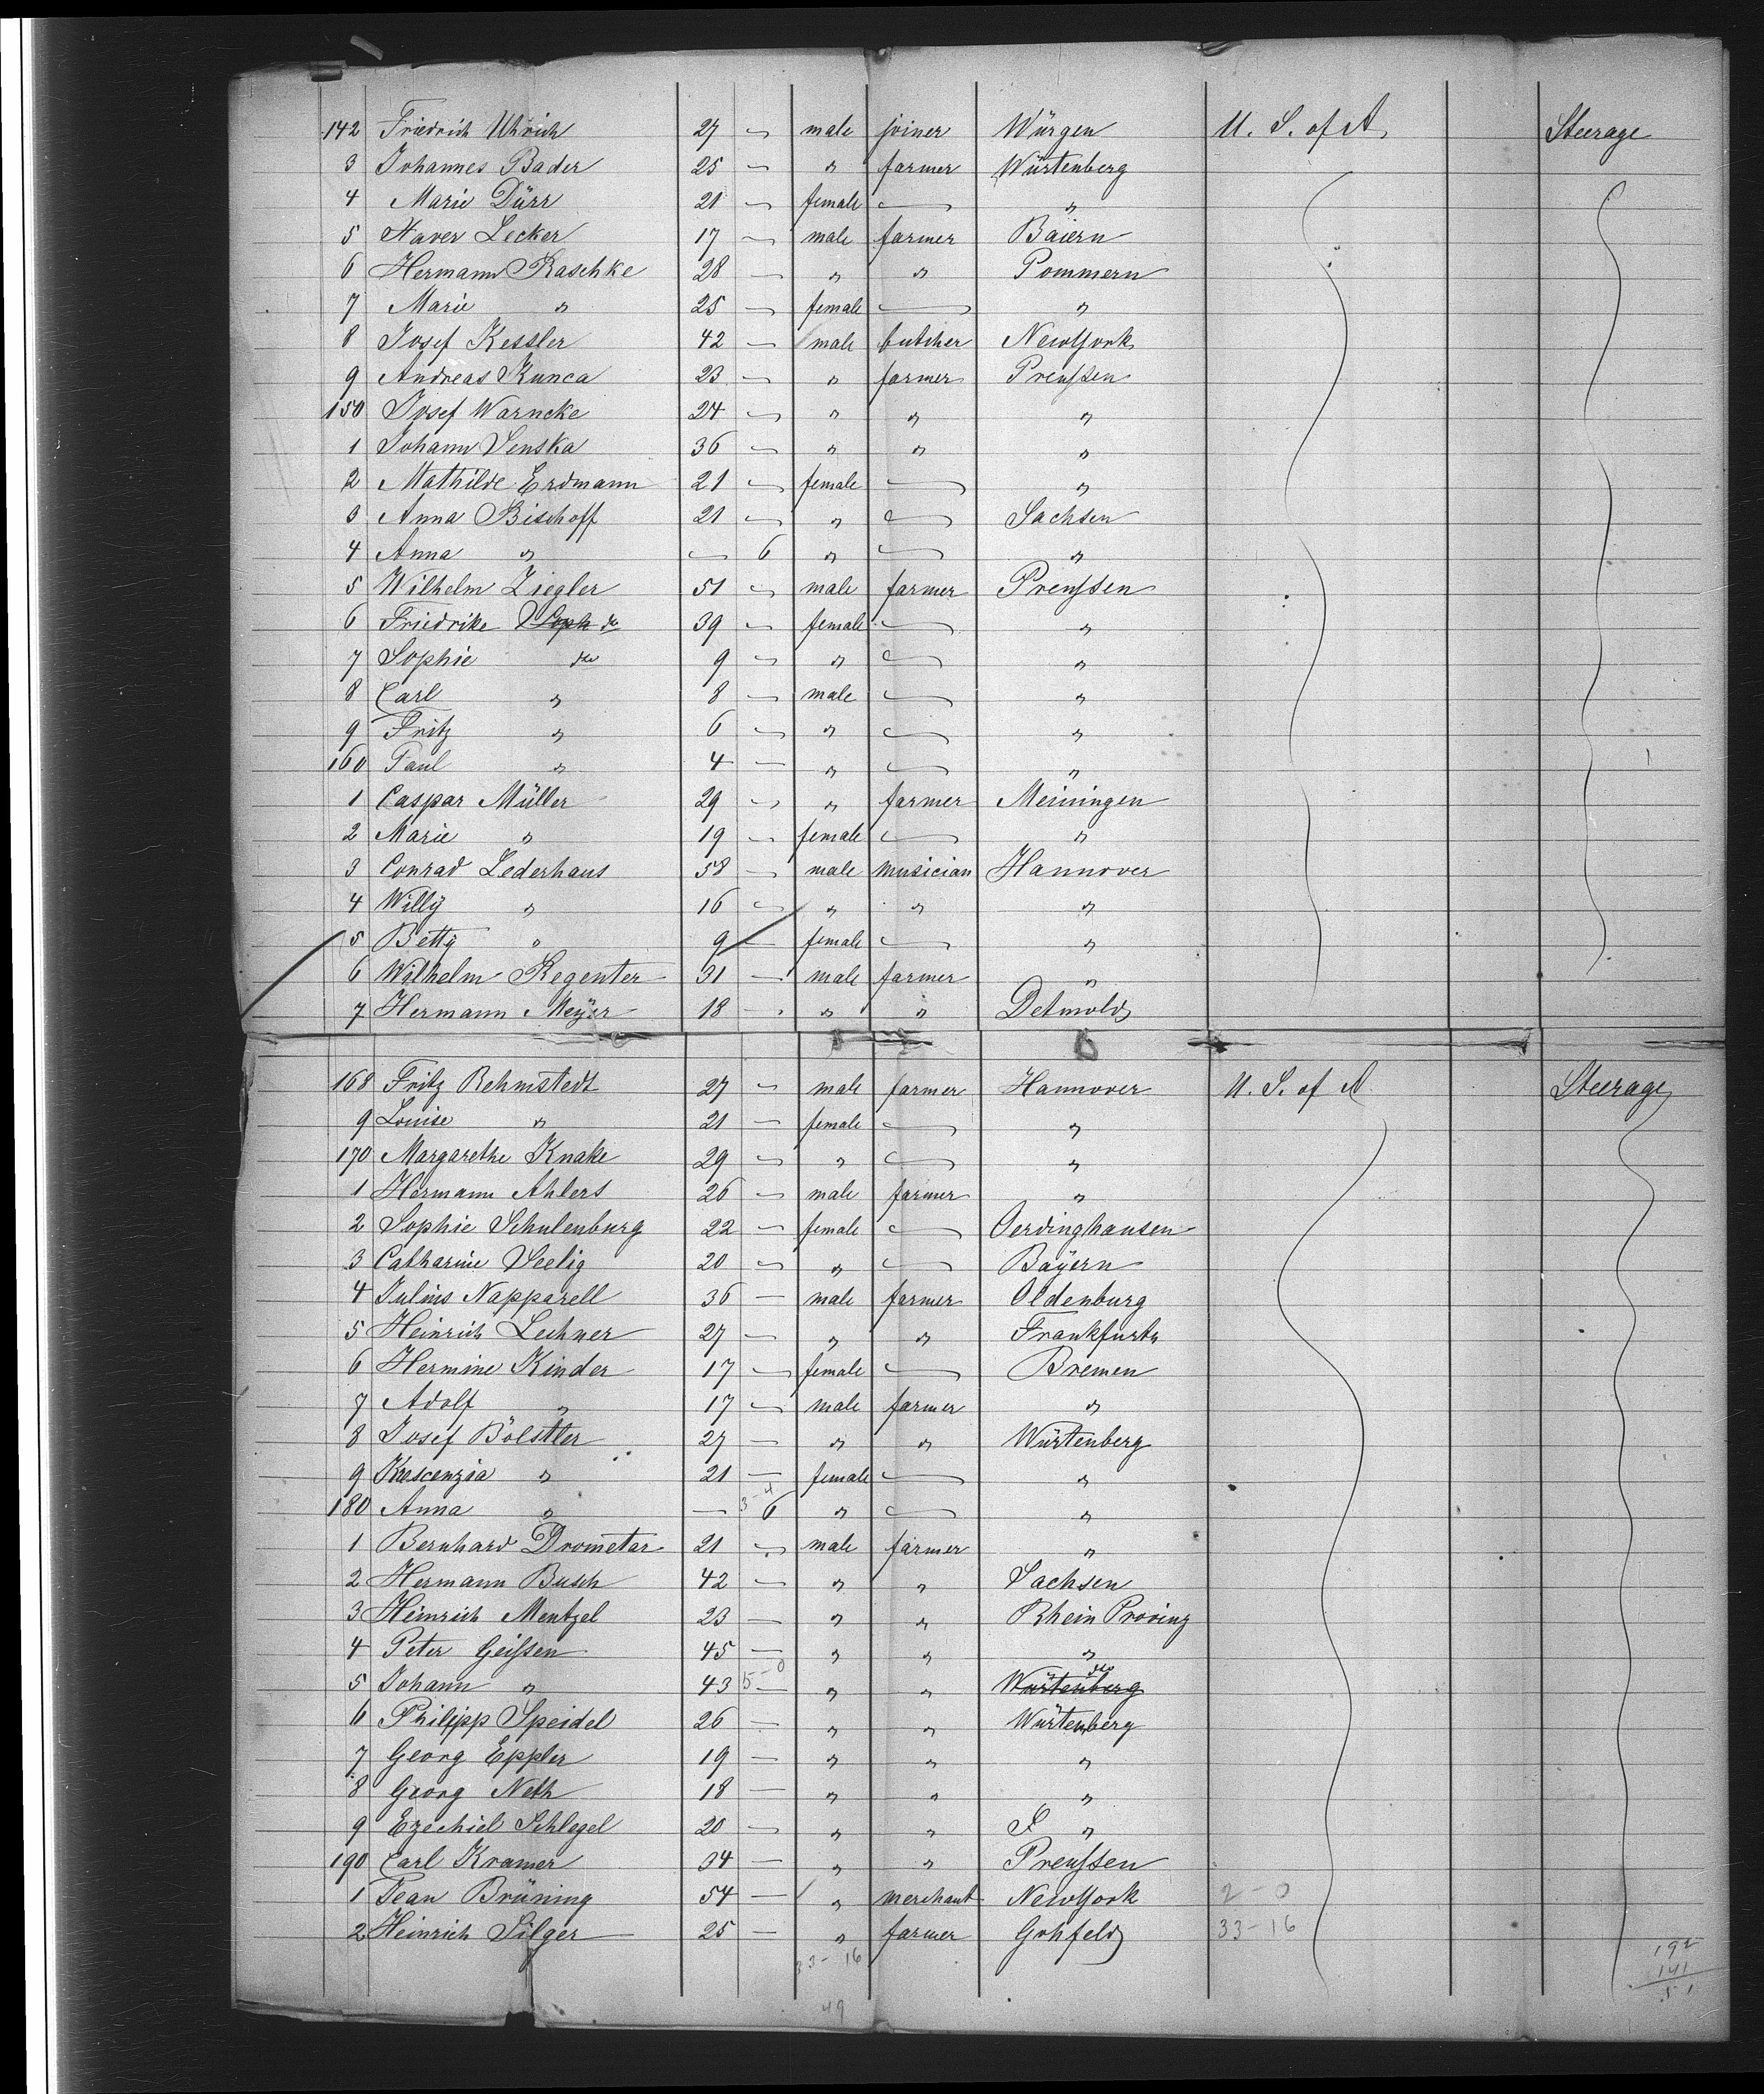 142 Friedrich Uhrich 27 — male joiner Würgen U. S. of A. Steerage
3 Johannes Bader 25 — " farmer Würtenberg
4 Marie Dürr 21 — female — "
5 Xaver Lecker 17 — male farmer Baiern
6 Hermann Raschke 28 — " " Pommern
7 Marie " 25 — female — "
8 Josef Kessler 42 — male butcher NewYork
9 Andreas Kunca 23 — " farmer Preußen
150 Josef Warncke 24 — " " "
1 Johann Senska 36 — " " "
2 Mathilde Erdmann 21 — female — "
3 Anna Bischoff 21 — " — Sachsen
4 Anna " — 6 " — "
5 Wilhelm Ziegler 51 — male farmer Preußen
6 Friedrike Soph do 39 — female — "
7 Sophie do 9 — " — "
8 Carl " 8 — male — "
9 Fritz " 6 — " — "
160 Paul " 4 — " — "
1 Caspar Müller 29 — " farmer Meiningen
2 Marie " 19 — female — "
3 Conrad Lederhaus 58 — male musician Hannover
4 Willÿ " 16 — " " "
5 Bettÿ " 9 — female — "
6 Wilhelm Regenter 31 — male farmer "
7 Hermann Meÿer 18 — " " Detmold
168 Fritz Rehmstedt 27 — male farmer Hannover U. S. of A Steerage
9 Louise " 21 — female — "
170 Margarethe Knake 29 — " — "
1 Hermann Ahlers 26 — male farmer "
2 Sophie Schulenburg 22 — female — Oerdinghausen
3 Catharine Seelig 20 — " — Baÿern
4 Julius Napparell 36 — male farmer Oldenburg
5 Heinrich Lechner 27 — " " Frankfurt
6 Hermine Kinder 17 — female — Bremen
7 Adolf " 17 — male farmer "
8 Josef Bölstler 27 — " " Würtenberg
9 Krescenzia " 21 — female — "
180 Anna " — 3-4 6 " — "
1 Bernhard Drometar 21 — male farmer "
2 Hermann Busch 42 — " " Sachsen
3 Heinrich Mentzel 23 — " " Rhein Provinz
4 Peter Geißen 45 — " " "
5 Johann " 43 5-0 — " " Würtenberg do
6 Philipp Speidel 26 — " " Würtenberg
7 Georg Eppler 19 — " " "
8 Georg Neth 18 — " " "
9 Ezechiel Schlegel 20 — " " S "
190 Carl Kramer 34 — " " Preußen
1 Jean Brüning 54 — " merchant NewYork 2-0
2 Heinrich Silger 25 — " farmer Gohfeld 33-16
33-16
192
141
51
49